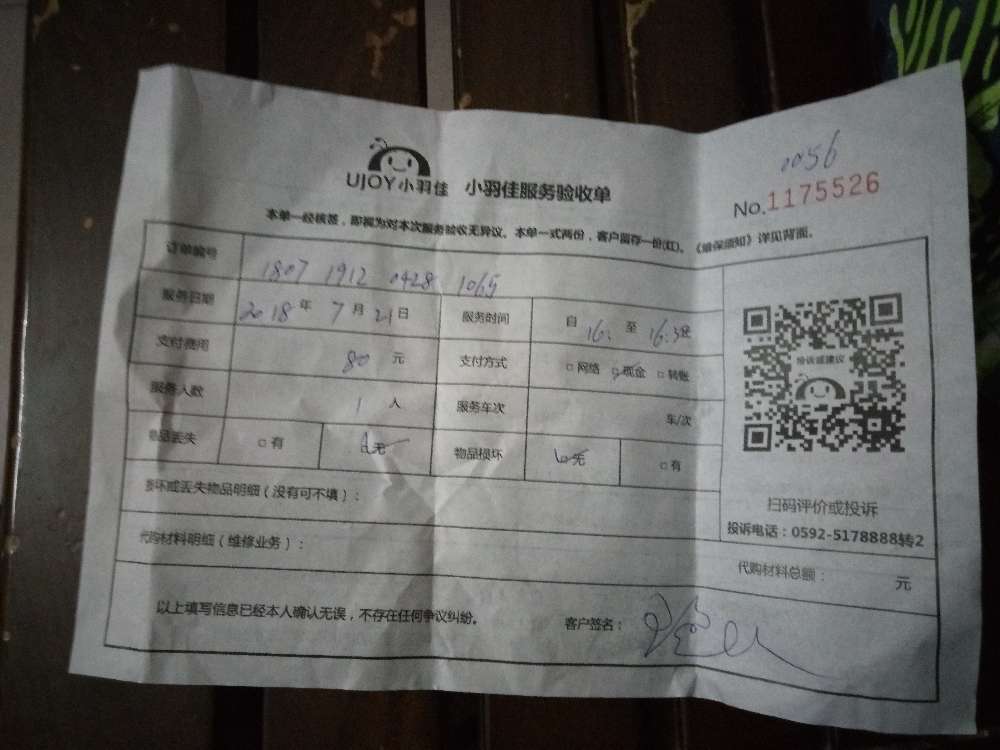 0056
UJOY小羽佳 小羽佳服务验收单
No.1175526
本单一经核甚，即视为对本次服务验收无异议。本单一式两份，客户留存一份(红)。《维保须知》详见背面。
订单编号 1807 1912 0428 1065
服务日期 2018年 7月 21日 服务时间 自 16: 至 16:30
支付费用 80 元 支付方式 □网络 □现金 □转账
服务人数 1 人 服务车次 车/次
物品丢失 □有 □无 物品损坏 □无 □有
损坏或丢失物品明细（没有可不填）：
投诉或建议
扫码评价或投诉
投诉电话：0592-5178888转2
代购材料明细（维修业务）：
代购材料总额： 元
以上填写信息已经本人确认无误，不存在任何争议纠纷。 客户签名：